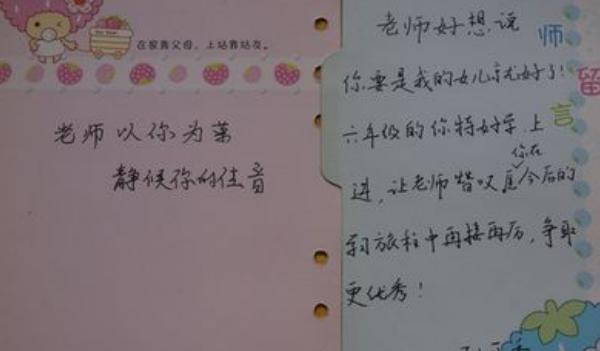 在家靠父母，上站靠站友。
老师以你为荣
静候你的佳音
老师好想说
你要是我的女儿就好了！
六年级的你特好学、上
进，让老师赞叹！愿你在今后的
学习旅程中再接再厉，争取
更优秀！
师
留
言